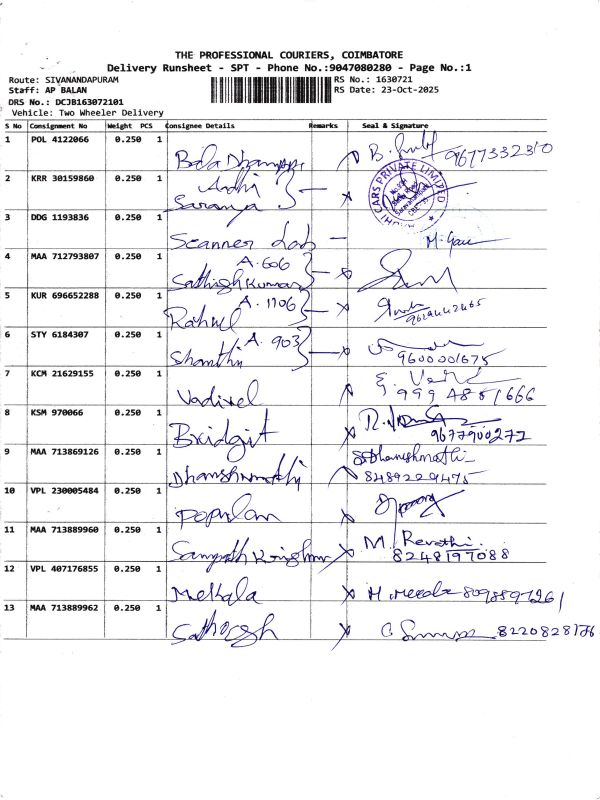 THE PROFESSIONAL COURIERS, COIMBATORE
Delivery Runsheet - SPT - Phone No.:9047080280 - Page No.:1
Route: SIVANANDAPURAM RS No.: 1630721
Staff: AP BALAN RS Date: 23-Oct-2025
DRS No.: DCJB163072101
Vehicle: Two Wheeler Delivery
S No Consignment No Weight PCS Consignee Details Remarks Seal & Signature
1 POL 4122066 0.250 1
2 KRR 30159860 0.250 1 Saranya
CARS PRIVATE LIMITED
3 DDG 1193836 0.250 1 Scanner Lab
4 MAA 712793807 0.250 1 A.606
Sathish Kumar
5 KUR 696652288 0.250 1 A.1706
Rahul
6 STY 6184307 0.250 1 A.903
Shanthi 9600001675
7 KCM 21629155 0.250 1 Vadivel
8 KSM 970066 0.250 1 Bridgit 9677900272
9 MAA 713869126 0.250 1 Dhanshmathi 8489229475
10 VPL 230005484 0.250 1 Popular
11 MAA 713889960 0.250 1 M. Revathi
8248197088
12 VPL 407176855 0.250 1 Mekala
13 MAA 713889962 0.250 1